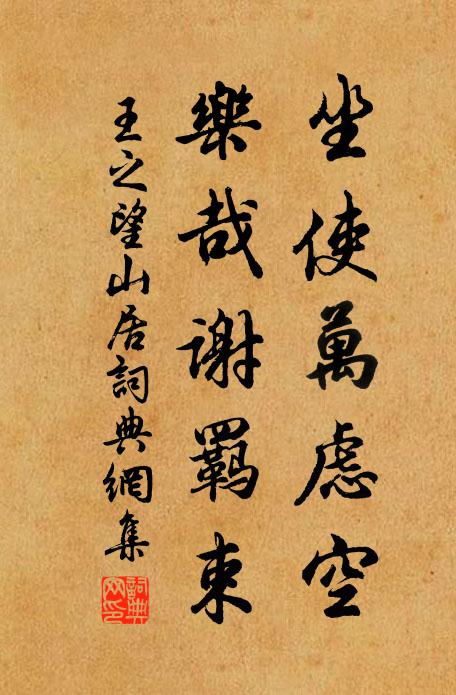 坐使萬慮空
樂哉謝羈束
王之望山居詞典網集
詞典網印